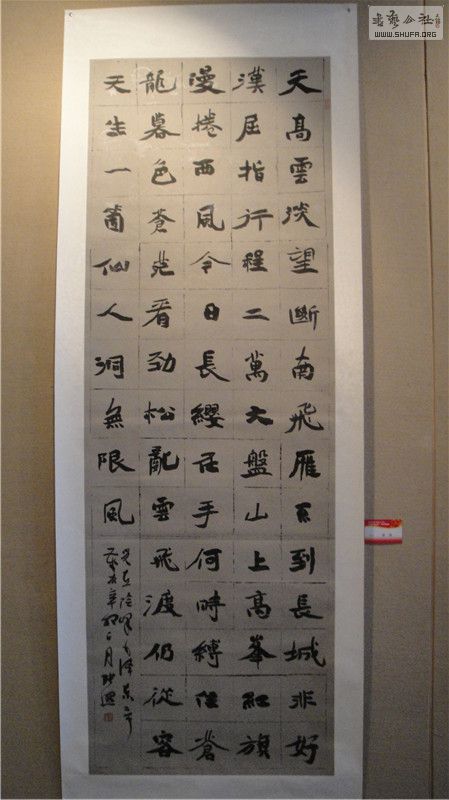 天高雲淡望斷南飛雁不到長城非好
漢屈指行程二萬六盤山上高峯紅旗
漫捲西風今日長纓在手何時縛住蒼
龍暮色蒼茫看勁松亂雲飛渡仍從容
天生一箇仙人洞無限風
光在險峰毛澤東
辛卯月
書藝公社
WWW.SHUFA.ORG